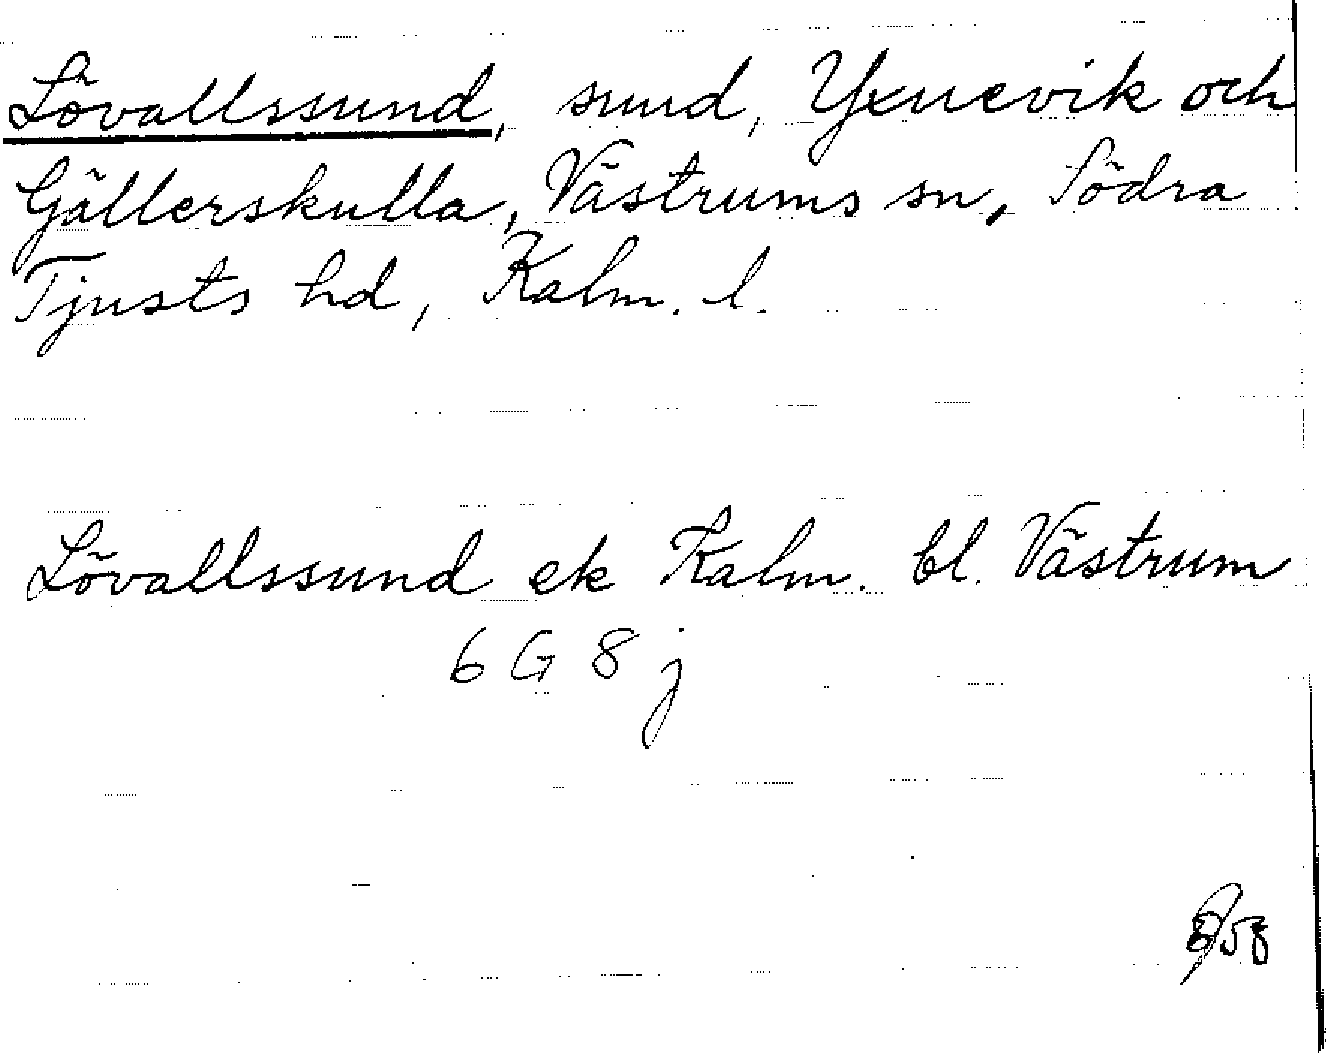 Lövallssund, sund, Yxnevik och
Gällerskulla, Västrums sn, Södra
Tjusts hd, Kalm. l.
Lövallssund ek Kalm. bl. Västrum
6 G 8 j